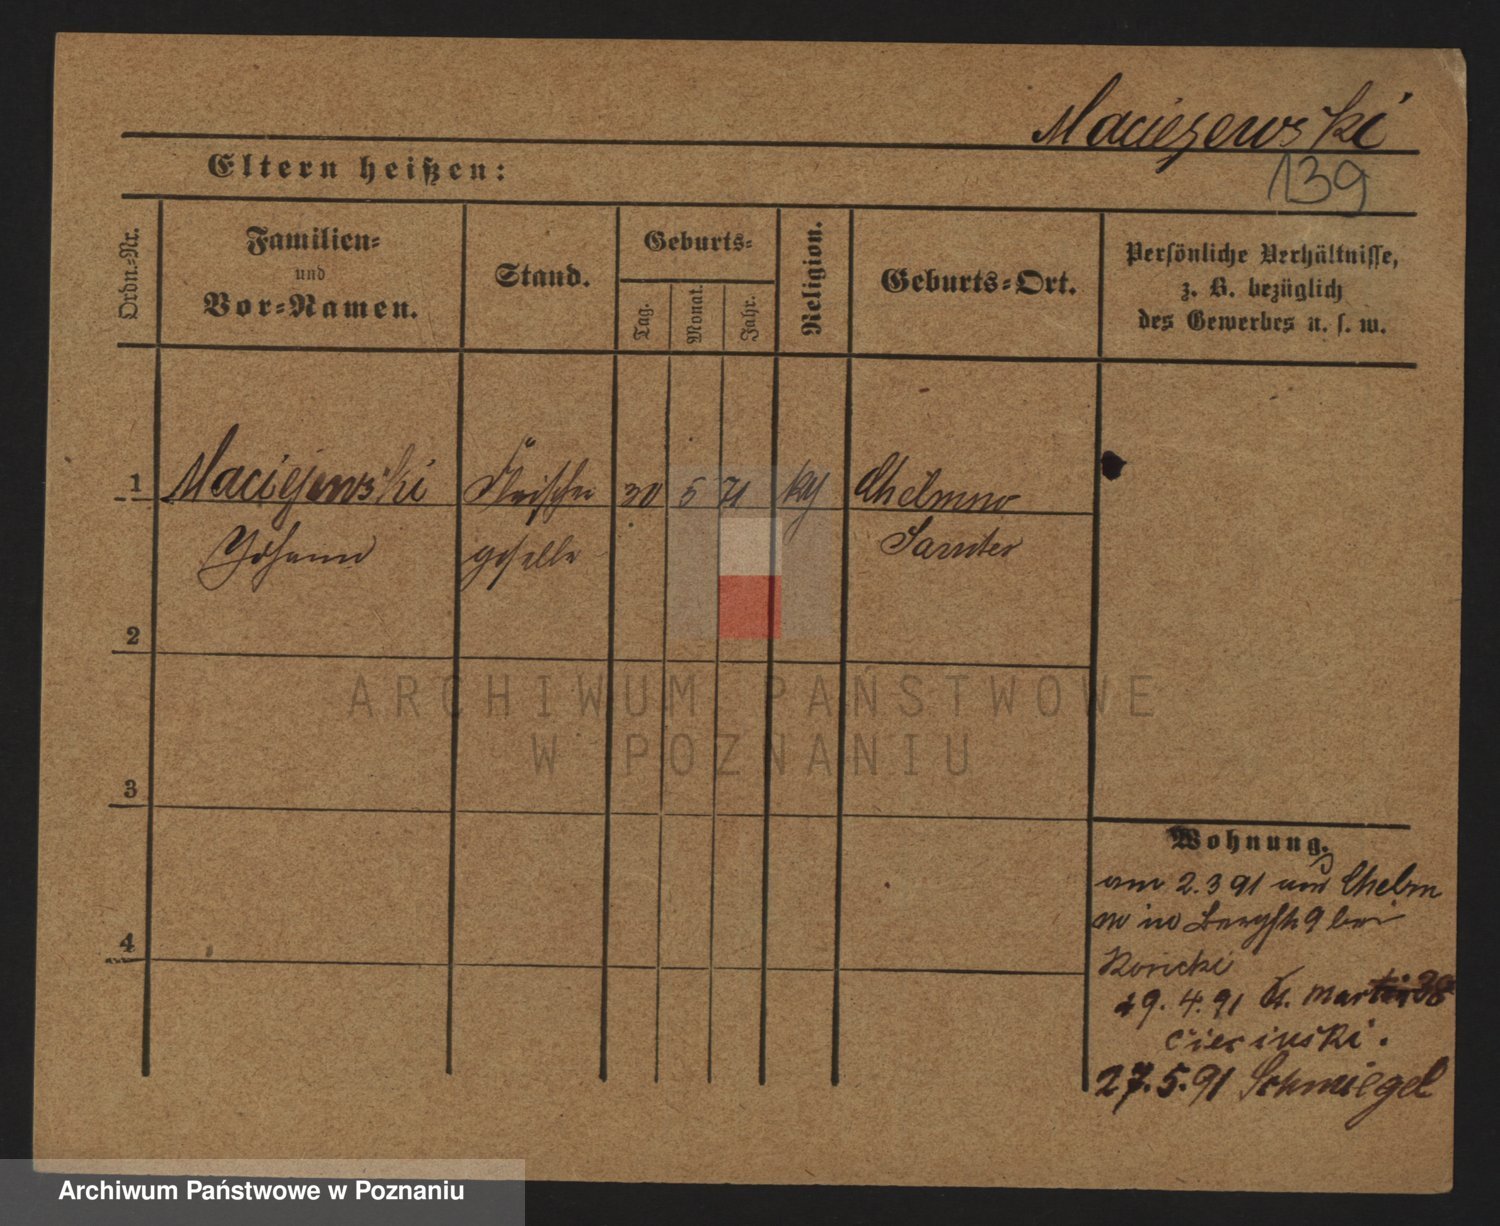 Maciejewski
139
Eltern heißen:
Ordn.-Nr.
Familien-
und
Vor-Namen.
Stand.
Geburts-
Tag.
Monat.
Jahr.
Religion.
Geburts-Ort.
Persönliche Verhältnisse,
z. B. bezüglich
des Gewerbes u. s. w.
1 Maciejewski Fleischer 30 5 71 Chelmno
Johann geselle Samter
2
3
4
Wohnung.
am 2.3 91 von Chelm
no in Bergstr 9 bei
29. 4. 91 St. Martin 38
27. 5. 91 Schmiegel
ARCHIWUM PAŃSTWOWE
W POZNANIU
Archiwum Państwowe w Poznaniu